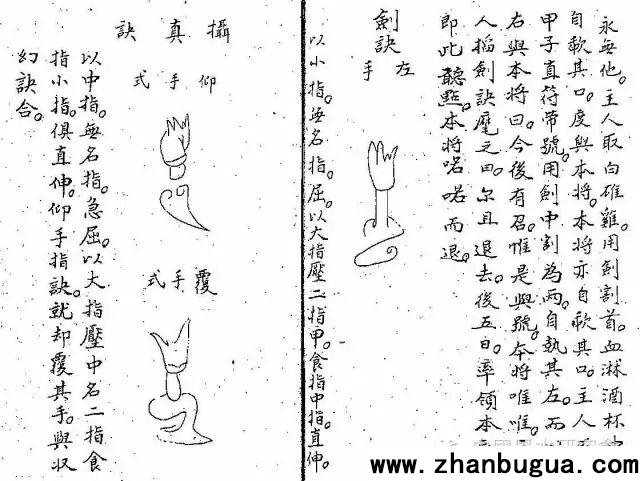 永無他。主人取白雄雞。用劍割首。血淋酒杯中
自歃其口。度與本將。本將亦自歃其口。主人
甲子直符帶號。用劍中割為兩。自執其左。而
右與本將曰。今後有召。惟是與號。本將唯唯。
人掐劍訣麾之曰。尔且退去。後五日。率領本
即此聽點。本將喏喏而退。
劍訣 左手
以小指。無名指。屈。以大指壓二指甲。食指中指直伸。
攝真訣
仰手式
覆手式
以中指。無名指。急屈。以大指壓中名二指食
指小指。俱直伸。仰手指訣。就却覆其手。與収
幻訣合。
www.zhanbugua.com